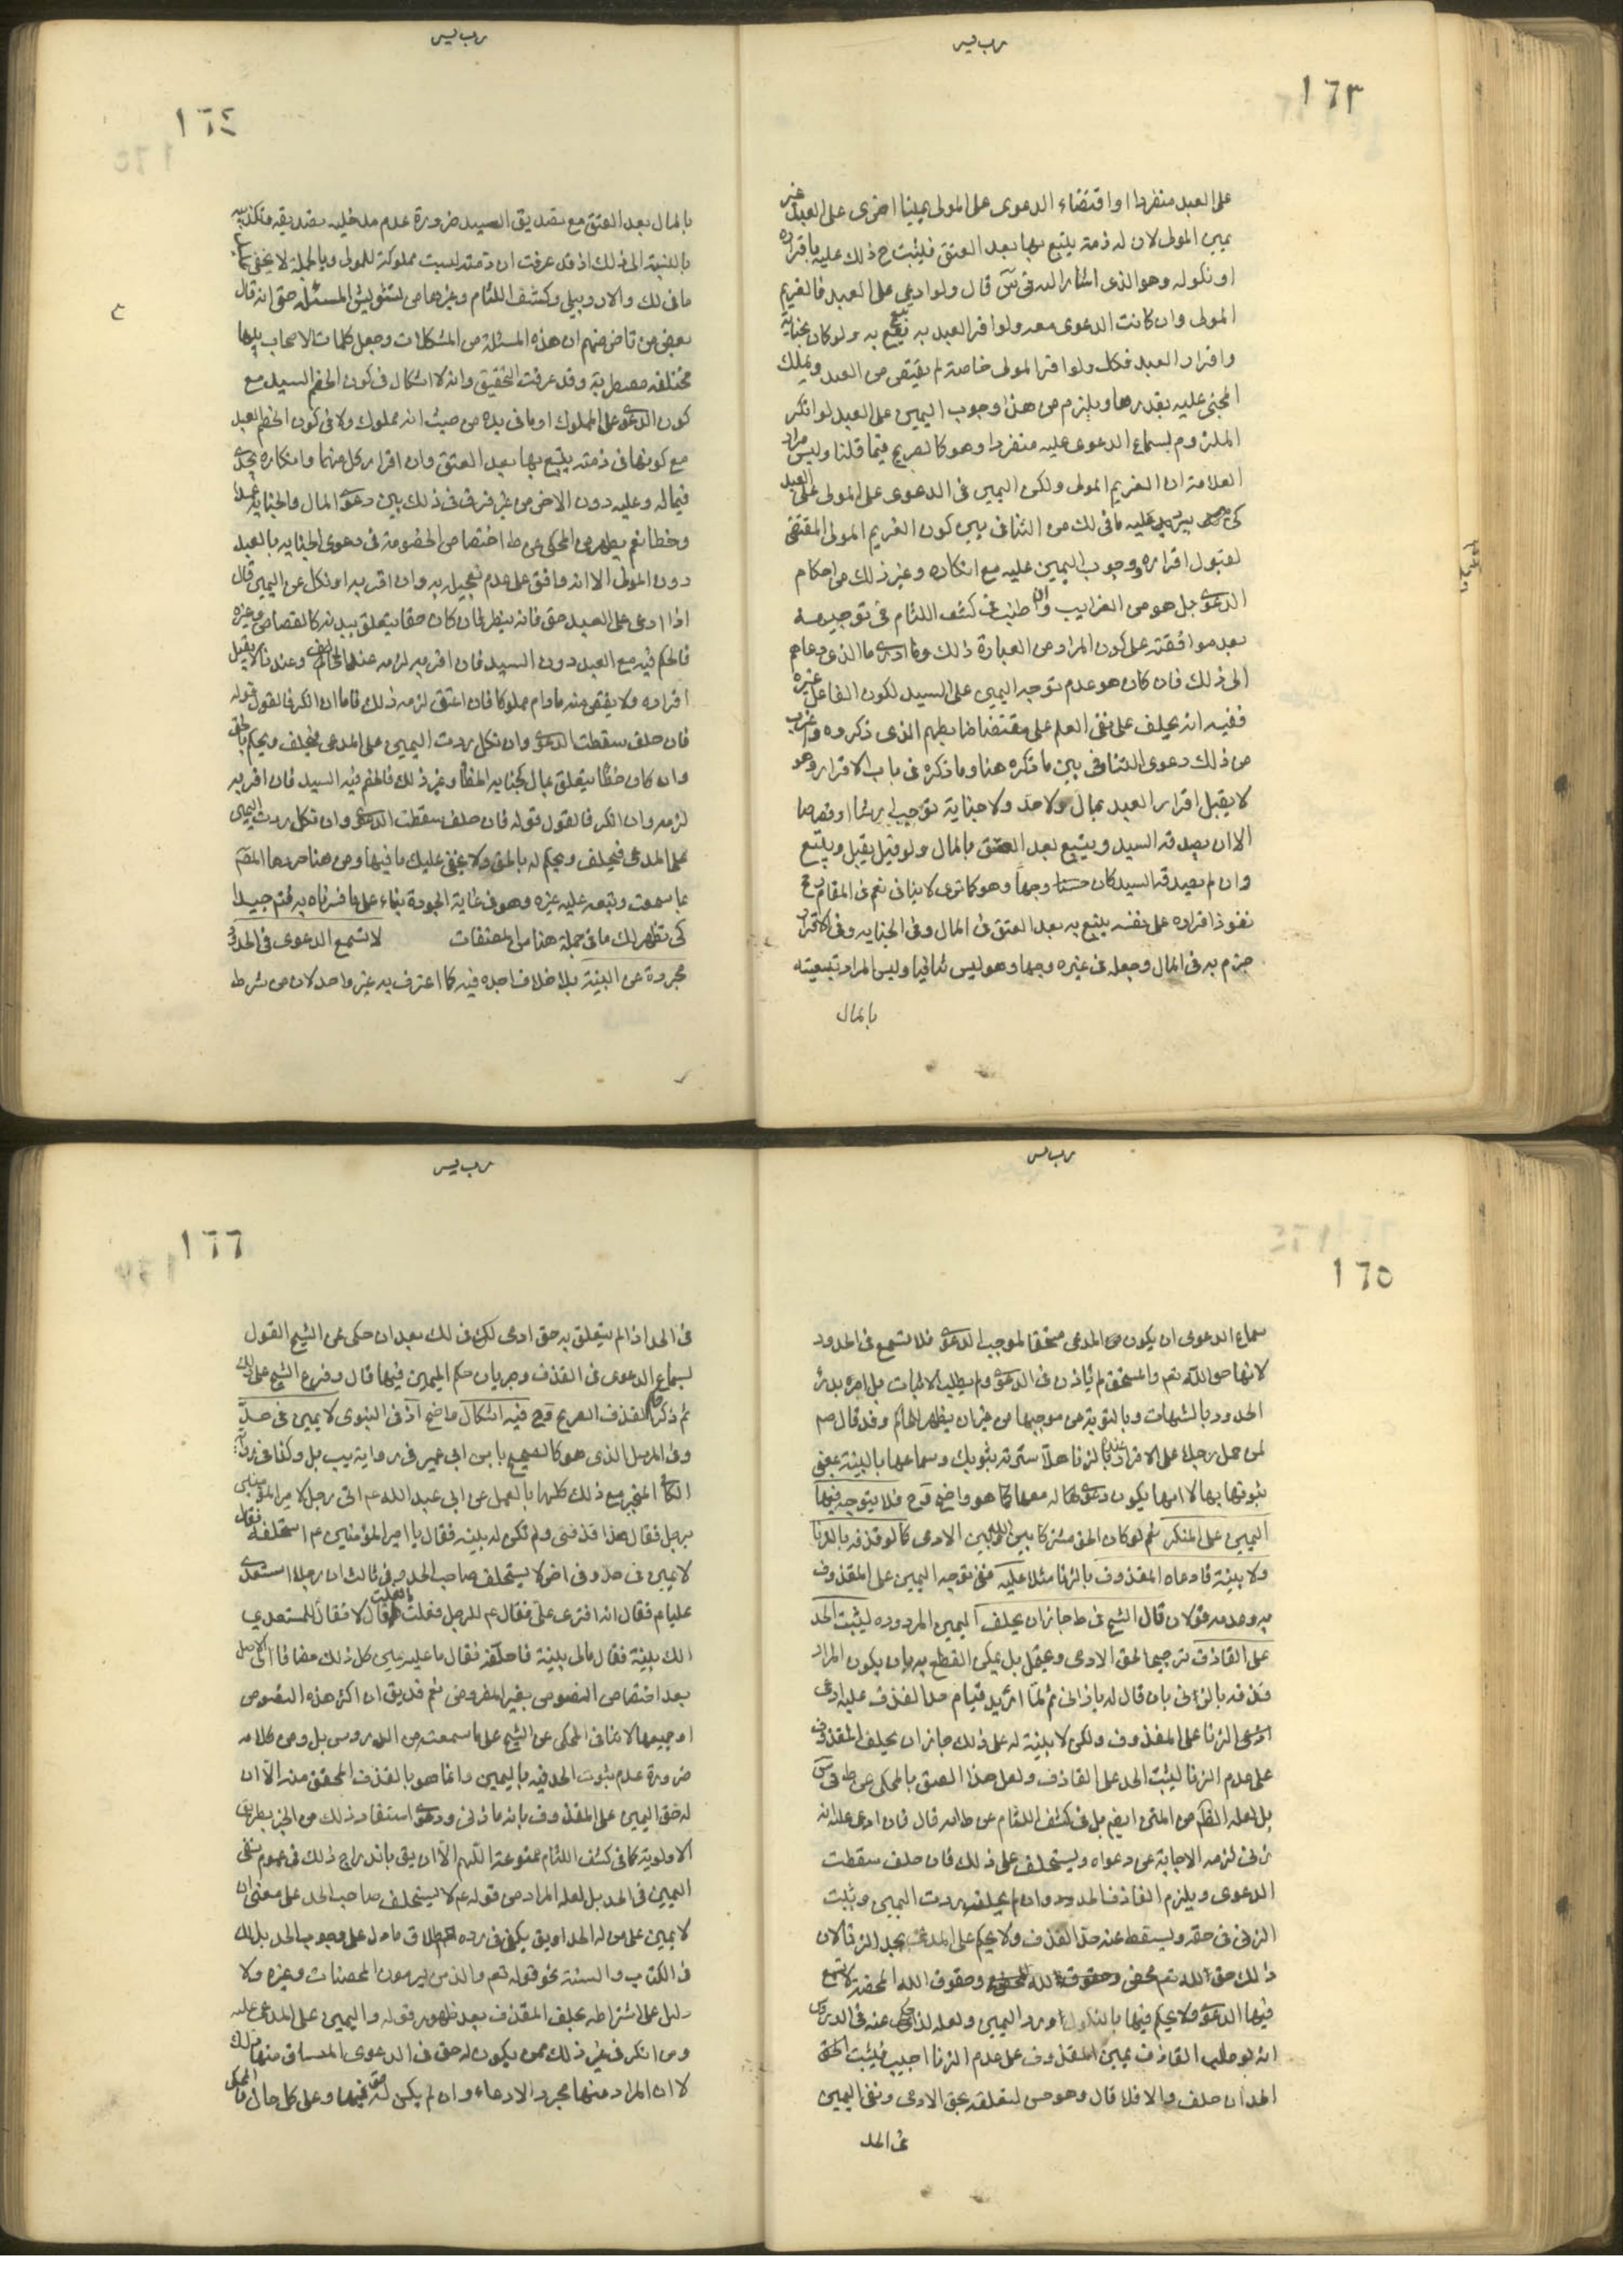 ١٦٣
على العبد منفردا او اقتضاء الدعوى على المولى يمينا اخرى على العبد غير
يمين المولى لان له ذمة يتبع بها بعد العتق فيثبت ح ذلك عليه باقراره
او نكوله وهو الذى اشار اليه فى س قال ولو ادعى على العبد فالغريم
المولى وان كانت الدعوى معه ولو اقر العبد به تبع به ولو كان بجناية
واقرار العبد فكك ولو اقر المولى خاصة لم يقتص من العبد ويملك
المجنى عليه بقدرها ويلزم من هذا وجوب اليمين على العبد لو انكر
الملزوم لسماع الدعوى عليه منفردا وهو كالصريح فيما قلنا وليس مراد
العلامة ان الغريم المولى ولكن اليمين فى الدعوى على المولى على العبد
كى يرد عليه ما فى لك من التنافى بين كون الغريم المولى المقتضى
لقبول اقراره ووجوب اليمين عليه مع انكاره وغير ذلك من احكام
الدعوى بل هو من الغرايب وان اطنب فى كشف اللثام فى توجيهه
بعد موافقته على كون المراد من العبارة ذلك وما ادرى ما الذى دعاهم
الى ذلك فان كان هو عدم توجه اليمين على السيد لكون الفاعل غيره
ففيه انه يحلف على نفى العلم على مقتضا ضابطهم الذى ذكروه واغرب
من ذلك دعوى التنافى بين ما ذكره هنا وما ذكره فى باب الاقرار وهو
لا يقبل اقرار العبد بمال ولا حد ولا جناية توجب ارشا او قصاصا
الا ان يصدقه السيد ويتبع بعد العتق بالمال ولو قيل يقبل ويتبع
وان لم يصدقه السيد كان حسنا وجها وهو كما ترى لا ينافى نعم فى المقام رجح
نفوذ اقراره على نفسه يتبع به بعد العتق فى المال وفى الجنايه وفى الاقرار
جزم به فى المال وجعله فى غيره وجها وهو ليس تنافيا وليس المراد تبعيته
بالمال
١٦٤
بالمال بعد العتق مع تصديق السيد ضرورة عدم مدخليه تصديقه وتكذيبه
بالنسبة الى ذلك اذ قد عرفت ان ذمته ليست مملوكة للمولى وبالجملة لا يخفى عليك
ما فى لك والاردبيلى وكشف اللثام وغيرها من تشويش المسئلة حتى انه قال
بعض من تاخر عنهم ان هذه المسئلة من المشكلات وجعل كلمات الاصحاب فيها
مختلفه مضطربة وقد عرفت التحقيق وانه لا اشكال فى كون الخصم السيد مع
كون الدعوى على المملوك او ما فى يده من حيث انه مملوك ولا فى كون الخصم العبد
مع كونها فى ذمته يتبع بها بعد العتق وان اقرار كل منهما وانكاره يجدى
فيما له وعليه دون الاخر من غير فرق فى ذلك بين دعوى المال والجنايه عمدا
وخطا نعم يظهر من المحكى عن ط اختصاص الخصومة فى دعوى الجنايه بالعبد
دون المولى الا انه وافق على عدم تعجيله به وان اقر به او نكل عن اليمين قال
اذا ادعى على العبد حق فانه ينظر فان كان حقا يتعلق ببدنه كالقصاص وغيره
فالحكم فيه مع العبد دون السيد فان اقر به لزمه عند المخالف وعندنا لا يقبل
اقراره ولا يقتص منه ما دام مملوكا فان اعتق لزمه ذلك فاما ان انكر فالقول قوله
فان حلف سقطت الدعوى وان نكل ردت اليمين على المدعى فيحلف ويحكم بالحق
وان كان حقا يتعلق بمال كجنايه الخطأ وغير ذلك فالخصم فيه السيد فان اقر به
لزمه وان انكر فالقول قوله فان حلف سقطت الدعوى وان نكل ردت اليمين
على المدعى فيحلف ويحكم له بالحق ولا يخفى عليك ما فيها ومن هنا صردها المصنف
بما سمعت وتبعه عليه غيره وهو فى غاية الجودة بناء على ما فسرناه به فتم جيدا
كى تظهر لك ما فى جملة هنا من المصنفات لا تسمع الدعوى فى الحدود
مجردة عن البينة بلا خلاف اجده فيه كما اعترف به غير واحد لان من شرط
١٦٥
سماع الدعوى ان يكون المدعى مستحقا لموجب الدعوى فلا تسمع فى الحدود
لانها حق الله تعم والمستحق لم ياذن فى الدعوى ولم يطلب الاثبات بل امر بدرء
الحدود بالشبهات وبالتوبة من موجبها من غير ان يظهر للحاكم وقد قال صم
لمن حمل رجلا على الاقرار عنده بالزنا هلا سترته بثوبك وسماعها بالبينة بمعنى
ثبوتها بها لا انها يكون دعوى لها له معها كما هو واضح قوح فلا يتوجه فيها
اليمين على المنكر نعم لو كان الحق مشتركا بين الله وبين الادمى كما لو قذفه بالزنا
ولا بينة فادعاه المقذوف بالزنا مثلا عليه ففى توجه اليمين على المقذوف
به وعدمه قولان قال الشيخ فى ط جاز ان يحلف اليمين المردوده ليثبت الحد
على القاذف ترجيحا لحق الادمى وعقل بل يمكن القطع به بان يكون المراد
قذفه بالزنى بان قال له يا زانى ثم لما اريد قيام حد القذف عليه ادعى
الزنا على المقذوف ولكن لا بينة له على ذلك جاز ان يحلف المقذوف
على عدم الزنا ليثبت الحد على القاذف ولعل هذا الصق بالمحكى عن ط فى س
بل لعله الظ من المتن ايضم بل فى كشف اللثام عن ط انه قال فان ادعى عليه انه
زنى لزمه الاجابة عن دعواه ويستحلف على ذلك فان حلف سقطت
الدعوى ويلزم القاذف الحد وان لم يحلف ردت اليمين وثبت
الزنى فى حقه ويسقط عنه حد القذف ولا يحكم على المدعى بحد الزنا لان
ذلك حق الله تعم محض وحقوق الله المحضة لا تسمع
فيها الدعوى ولا يحكم فيها بالنكول ورد اليمين ولعله لذا حكى عنه فى الدروس
انه لو طلب القاذف يمين المقذوف على عدم الزنا اجيب فيثبت الحق
الحد ان حلف والا فلا قال وهو حسن لتعلقه بحق الادمى ونفى اليمين
فى الحد
١٦٦
فى الحد اذا لم يتعلق به حق ادمى لكن فى لك بعد ان حكى عن الشيخ القول
لسماع الدعوى فى القذف وجريان حكم اليمين فيها قال وفرع الشيخ على ذلك
ثم ذكر القذف الصريح قوح فيه اشكال ماضح اذ فى النبوى لا يمين فى حد
وفى المرسل الذى هو كالصحيح بابن ابى عمير فى رواية يب بل وكذا فى
الكافى المنجبر مع ذلك كلها بالعمل عن ابى عبد الله عم اتى رجل لامير المؤمنين
برجل فقال هذا قذفنى ولم تكن له بينه فقال يا امير المؤمنين عم استحلفه فقال
لا يمين فى حد وفى اخر لا يستحلف صاحب الحد وفى ثالث ان رجلا استعدى
عليا عم فقال انه افترى على فقال عم للرجل فعلت ما فعلت قال لا فقال للمستعدى
الك بينة فقال مالى بينة فاحلفه فقال ما عليه يمين كل ذلك مضافا الى الاصل
بعد اختصاص النصوص بغير المفروض نعم قد يق ان اكثر هذه النصوص
او جميعها لا ينافى المحكى عن الشيخ على ما سمعت من الدروس بل ومن كلامه
ضرورة عدم ثبوت الحد فيه باليمين وانما هو بالقذف المحقق منه الا ان
له حق اليمين على المقذوف بانه ما زنى ودعوى استفاد ذلك من الخبر بطريق
الاولوية كما فى كشف اللثام ممنوعة اللهم الا ان يق باندراج ذلك فى عموم نفى
اليمين فى الحد بل لعله المراد من قوله عم لا يستحلف صاحب الحد على معنى ان
لا يمين على من له الحد او يق يكفى فى رده اطلاق ما دل على وجوب الحد بذلك
فى الكتاب والسنة نحو قوله تعم والذين يرمون المحصنات وغيره ولا
دليل على اشتراطه بحلف المقذف بعد ظهور قوله واليمين على المدعى عليه
ومن انكر فى غير ذلك ممن يكون له حق فى الدعوى المنساق منها ذلك
لا ان المراد منها مجرد الادعاء وان لم يكن له حق فيها وعلى كل حال فالمحكى